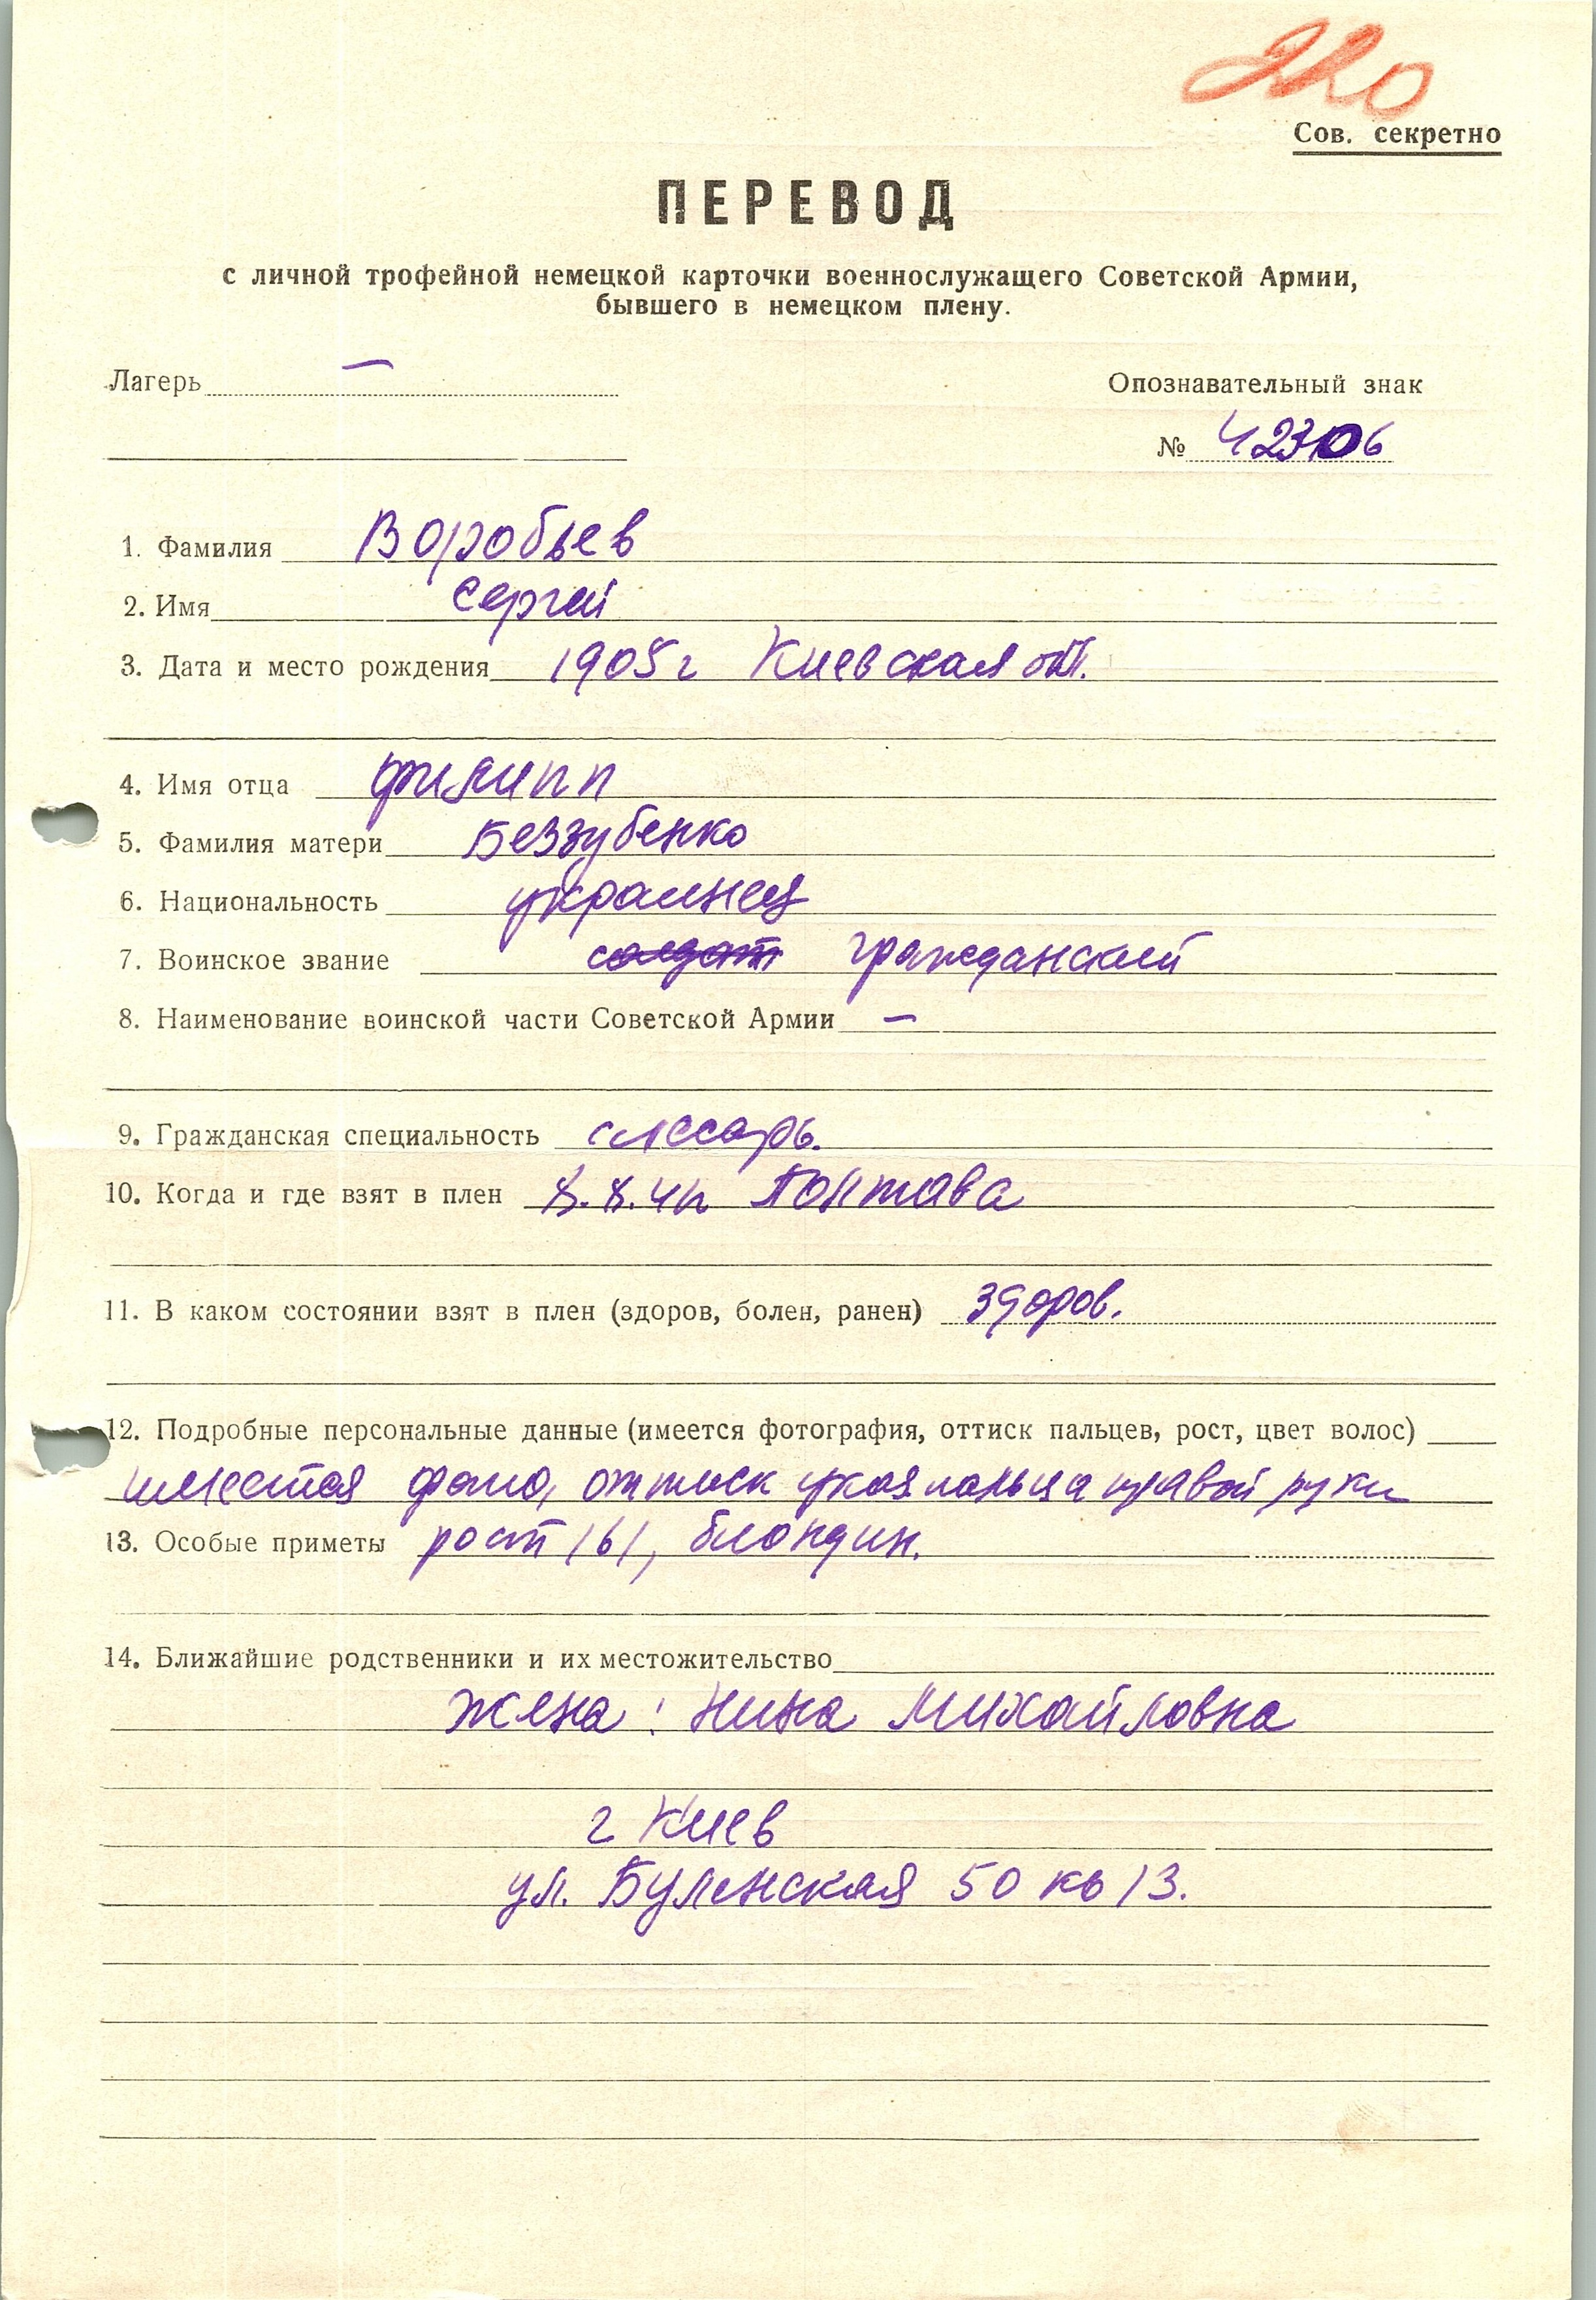 220
Сов. секретно
ПЕРЕВОД
с личной трофейной немецкой карточки военнослужащего Советской Армии,
бывшего в немецком плену.
Лагерь —
Опознавательный знак
№ 42306
1. Фамилия Воробьев
2. Имя Сергей
3. Дата и место рождения 1905 г Киевская обл.
4. Имя отца Филипп
5. Фамилия матери Беззубенко
6. Национальность украинец
7. Воинское звание солдат гражданский
8. Наименование воинской части Советской Армии —
9. Гражданская специальность слесарь.
10. Когда и где взят в плен 8.8.42 Полтава
11. В каком состоянии взят в плен (здоров, болен, ранен) здоров.
12. Подробные персональные данные (имеется фотография, оттиск пальцев, рост, цвет волос)
имеется фото, оттиск указ пальца правой руки
13. Особые приметы рост 161, блондин.
14. Ближайшие родственники и их местожительство
жена: Нина Михайловна
г Киев
ул. Буленская 50 кв 13.